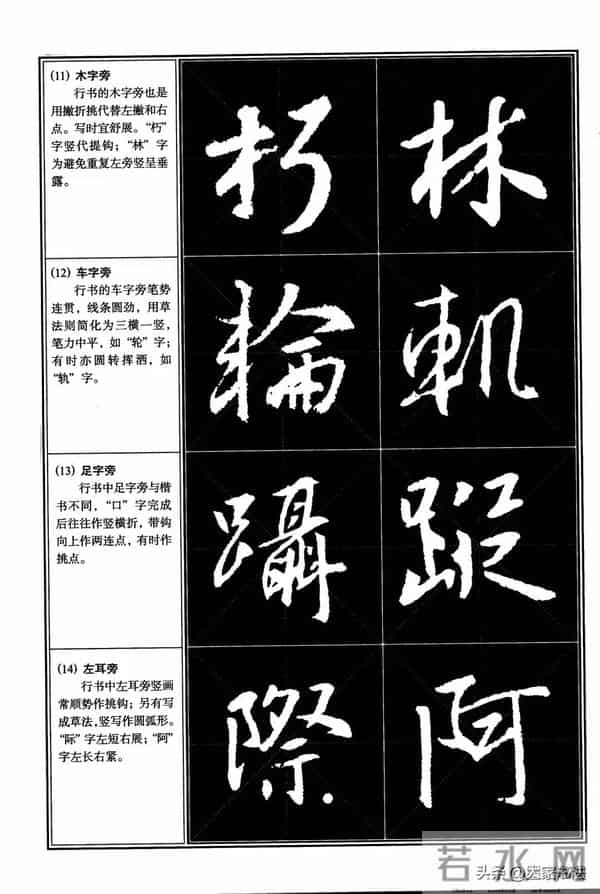 (11) 木字旁
行书的木字旁也是
用撇折挑代替左撇和右
点。写时宜舒展。“朽”
字竖代提钩；“林”字
为避免重复左旁竖呈垂
露。
朽 林
(12) 车字旁
行书的车字旁笔势
连贯，线条圆劲，用草
法则简化为三横一竖，
笔力中平，如“轮”字；
有时亦圆转挥洒，如
“轨”字。
輪 軌
(13) 足字旁
行书中足字旁与楷
书不同，“口”字完成
后往往作竖横折，带钩
向上作两连点，有时作
挑点。
躡 蹤
(14) 左耳旁
行书中左耳旁竖画
常顺势作挑钩；另有写
成草法，竖写作圆弧形。
“际”字左短右展；“阿”
字左长右紧。
際 阿
若水网
头条